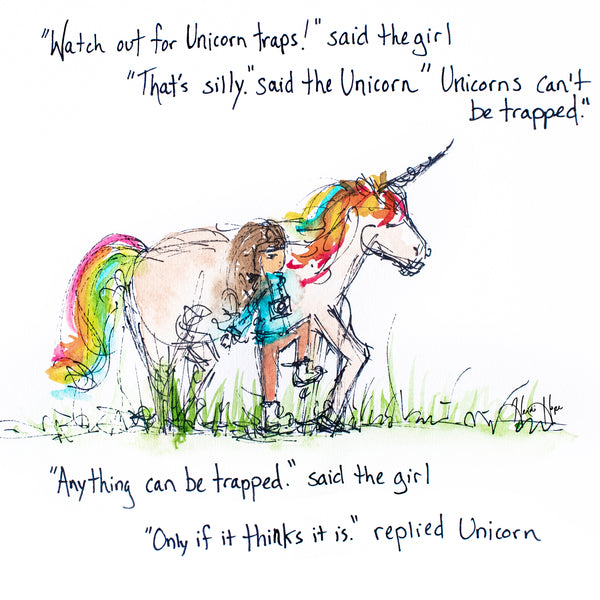 "Watch out for Unicorn traps!" said the girl
"That's silly." said the Unicorn" Unicorns can't
be trapped."
"Anything can be trapped." said the girl
"Only if it thinks it is." replied Unicorn